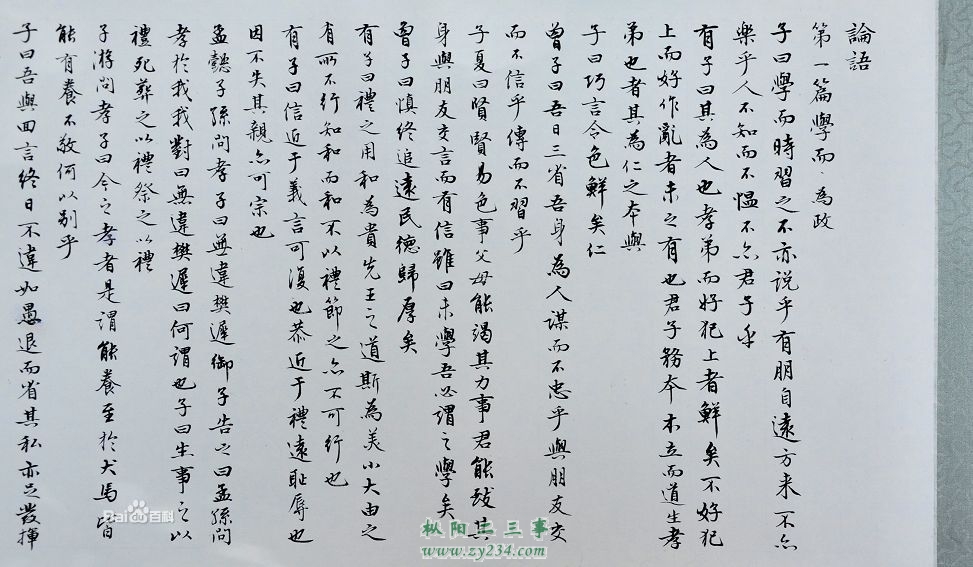 論語
第一篇學而·為政
子曰學而時習之不亦説乎有朋自遠方来不亦
樂乎人不知而不愠不亦君子乎
有子曰其為人也孝弟而好犯上者鮮矣不好犯
上而好作亂者未之有也君子務本本立而道生孝
弟也者其為仁之本與
子曰巧言令色鮮矣仁
曾子曰吾日三省吾身為人謀而不忠乎與朋友交
而不信乎傳而不習乎
子夏曰賢賢易色事父母能竭其力事君能致其
身與朋友交言而有信雖曰未學吾必謂之學矣
曾子曰慎終追遠民德歸厚矣
有子曰禮之用和為貴先王之道斯為美小大由之
有所不行知和而和不以禮節之亦不可行也
有子曰信近于義言可復也恭近于禮遠恥辱也
因不失其親亦可宗也
孟懿子孫問孝子曰無違樊遲御子告之曰孟孫問
孝於我我對曰無違樊遲曰何謂也子曰生事之以
禮死葬之以禮祭之以禮
子游問孝子曰今之孝者是謂能養至於犬馬皆
能有養不敬何以别乎
子曰吾與回言終日不違如愚退而省其私亦足發揮
Bai百科
枞阳二三事
www.zy234.com